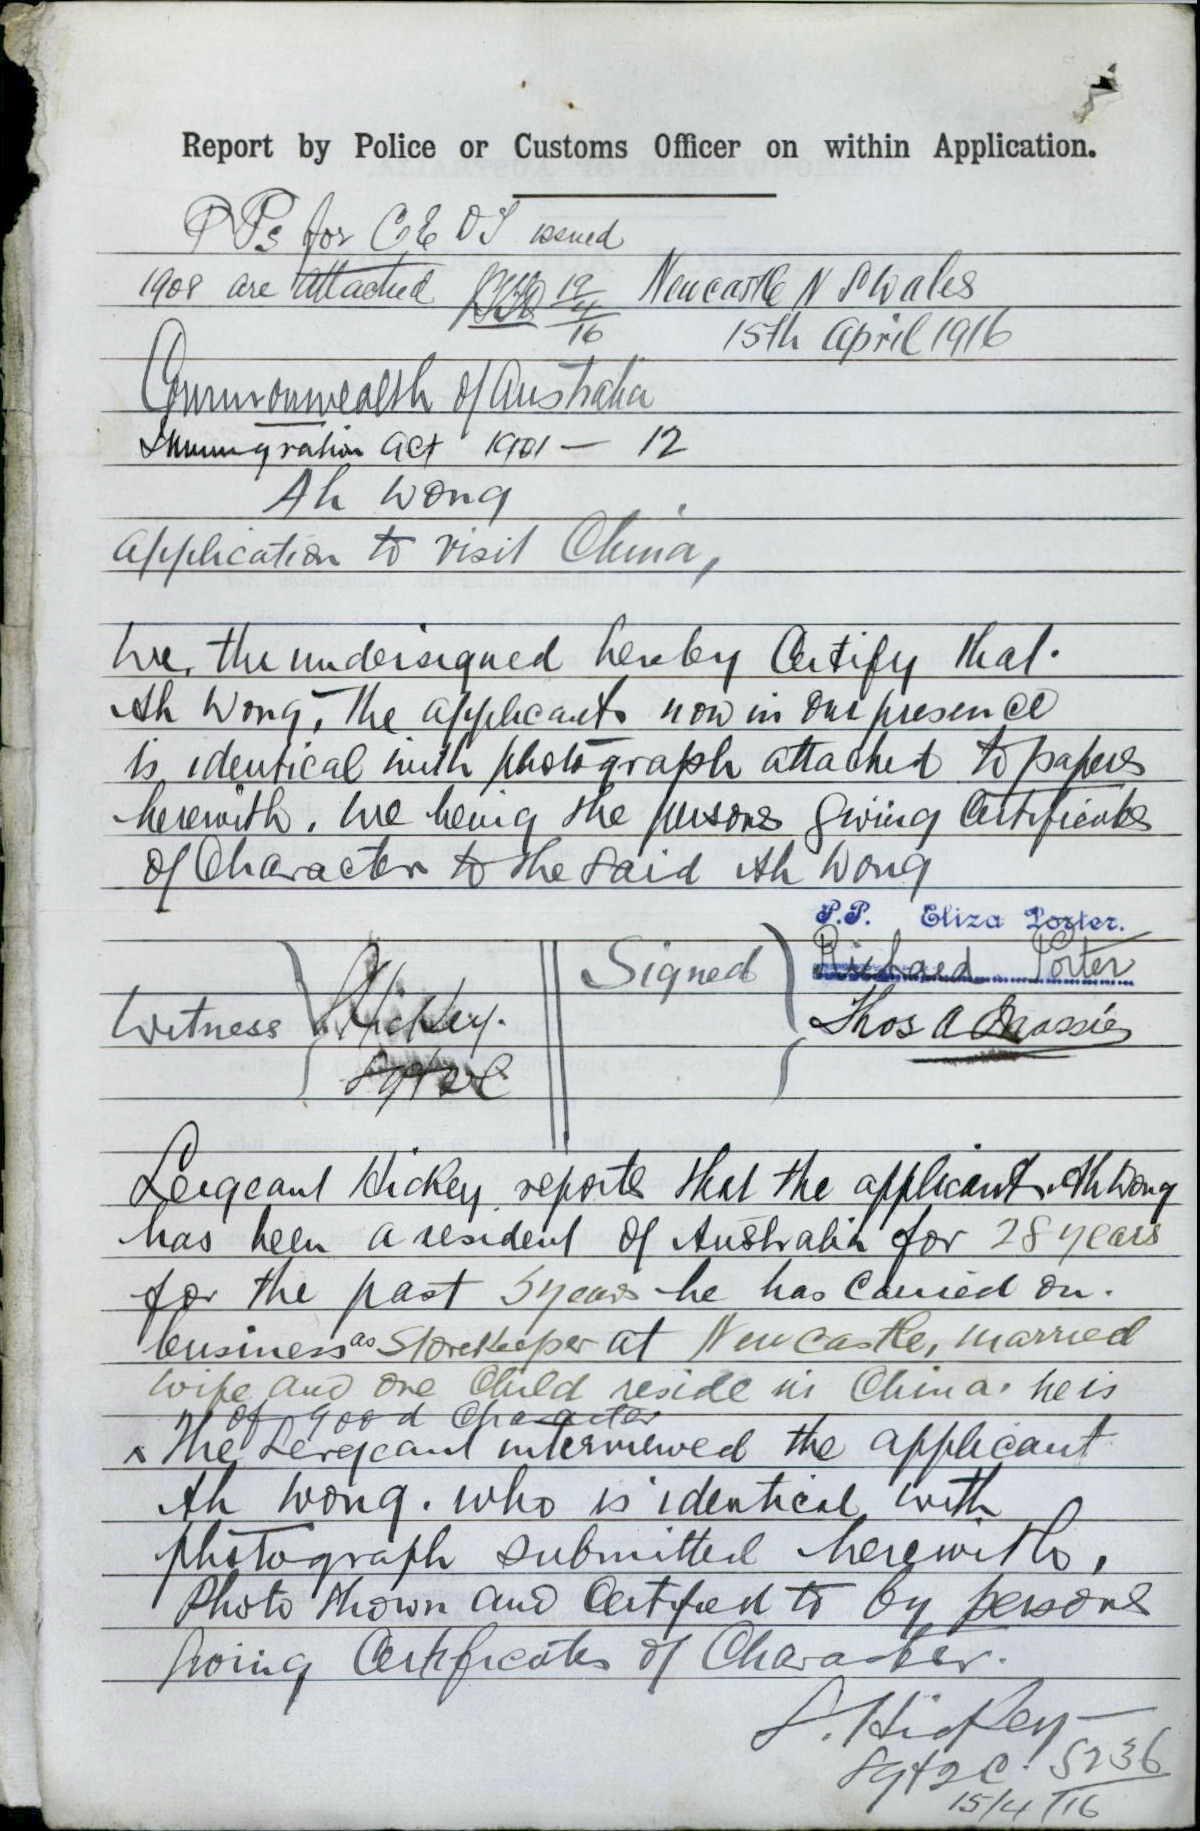 Report by Police or Customs Officer on within Application.
PPs for C E D T issued
1908 are attached
19/4/16
Newcastle N S Wales
15th April 1916
Commonwealth of Australia
Immigration Act 1901 – 12
Ah Wong
Application to visit China,
We, the undersigned hereby Certify that.
Ah Wong, the applicant now in our presence
is identical with photograph attached to papers
herewith. We being the persons giving Certificates
of Character to the said Ah Wong
P.P. Eliza Porter.
Signed Richard Porter
Witness Hickey.
Thos A Massie
Sgt 2 C
Sergeant Hickey reports that the applicant Ah Wong
has been a resident of Australia for 28 years
for the past 5 years he has carried on.
business as Storekeeper at Newcastle, married
wife and one Child reside in China. he is
of good Character
The Sergeant interviewed the applicant
Ah Wong. who is identical with
photograph submitted herewith.
Photo shown and Certified to by persons
giving Certificates of Character.
S. Hickey
Sgt 2 C. 5236
15/4/16